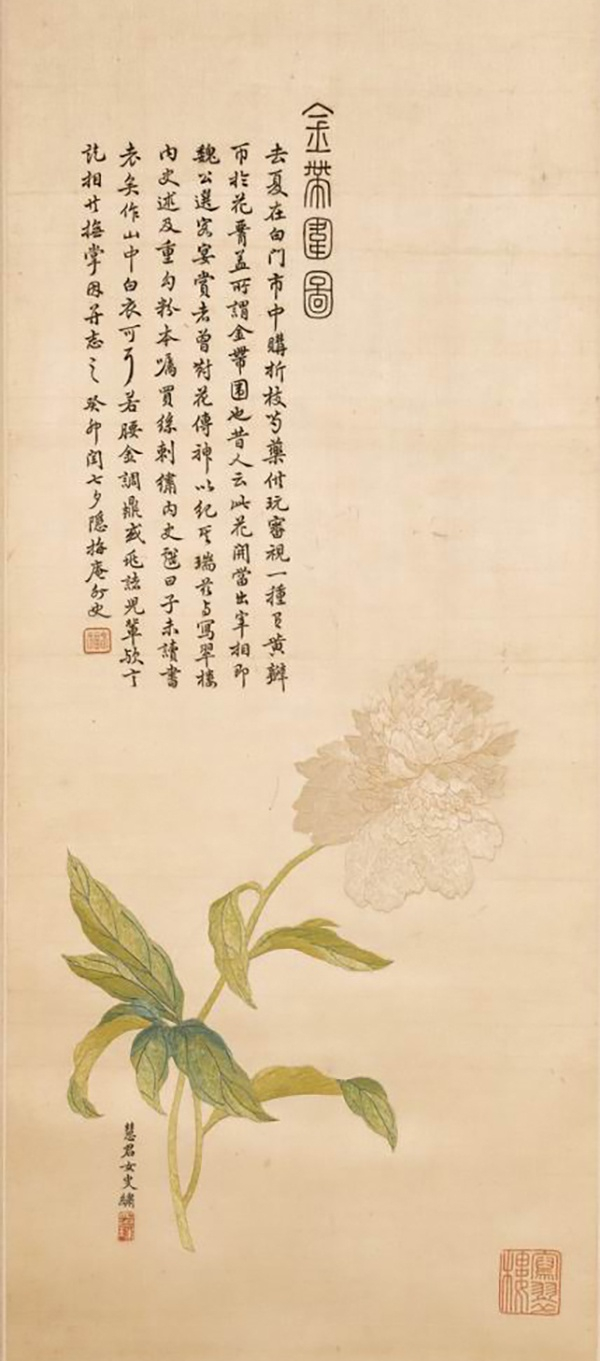 金帶圍圖
去夏在白門市中購折枝芍藥供玩審視一種有黃瓣
帀於花脣蓋所謂金帶圍也昔人云此花開當出宰相即
魏公選客宴賞者曾對花傳神以紀其瑞茲与寫翠樓
內史述及重勾粉本嘱買絲刺繡內史謔曰子未讀書
老矣作山中白衣可耳若腰金調鼎或兒輩歟言
訖相与撫掌因并志之 癸卯閏七夕隱梅庵外史
慧君女史繡
寫翠樓